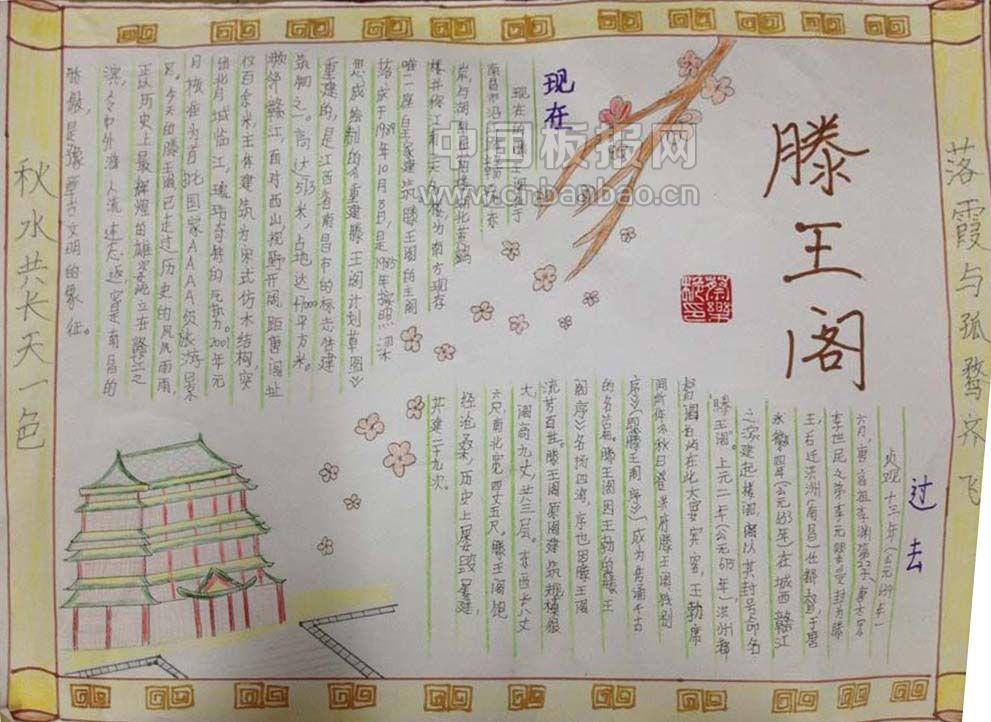 滕王阁
落霞与孤鹜齐飞
过去
贞观十三年(公元639年)
六月,唐高祖李渊第22子、唐太宗
李世民之弟李元婴受封为滕
王,后迁洪洲(南昌)任都督,于唐
永徽四年(公元653年)在城西赣江
之滨建起楼阁,阁以其封号命名
“滕王阁”。上元二年(公元675年),洪洲都
督阎
在此大宴宾客,王勃席
间所作《秋日登洪府滕王阁饯别
序》(即《滕王阁序》)成为传诵千古
的名篇。滕王阁因王勃的《滕王
阁序》名扬四海,序也因滕王阁
流芳百世。滕王阁原阁建筑规模很
大,阁高九丈,共三层。东西长八丈
六尺,南北宽四丈五尺。滕王阁饱
经沧桑,历史上屡毁屡建,
共建二十九次。
现在
现在
南昌市沿江路赣江东
岸,与湖
湖北黄鹤
楼并称江南三大名楼,为南方现存
唯一一座皇家建筑。滕王阁的主阁
落成于1989年10月8日,是1985年按照梁
思成绘制的《重建滕王阁计划草图》
重建的,是江西省南昌市的标志性建
筑物之一。高达57.5米,占地达47000平方米。
濒邻赣江,面对西山,视野开阔,距唐阁址
仅百余米,主体建筑为宋式仿木结构,突
出背城临江,瑰玮奇特的气势。2001年元
月核准为首批国家AAAA级旅游景
区。今天的滕王阁已走过历史的风风雨雨,
正以历史上最辉煌的雄姿屹立在赣江之
滨,令中外游人流连忘返,它是南昌的
骄傲,是豫章古文明的象征。
秋水共长天一色
中国板报网
www.cnbanbao.cn